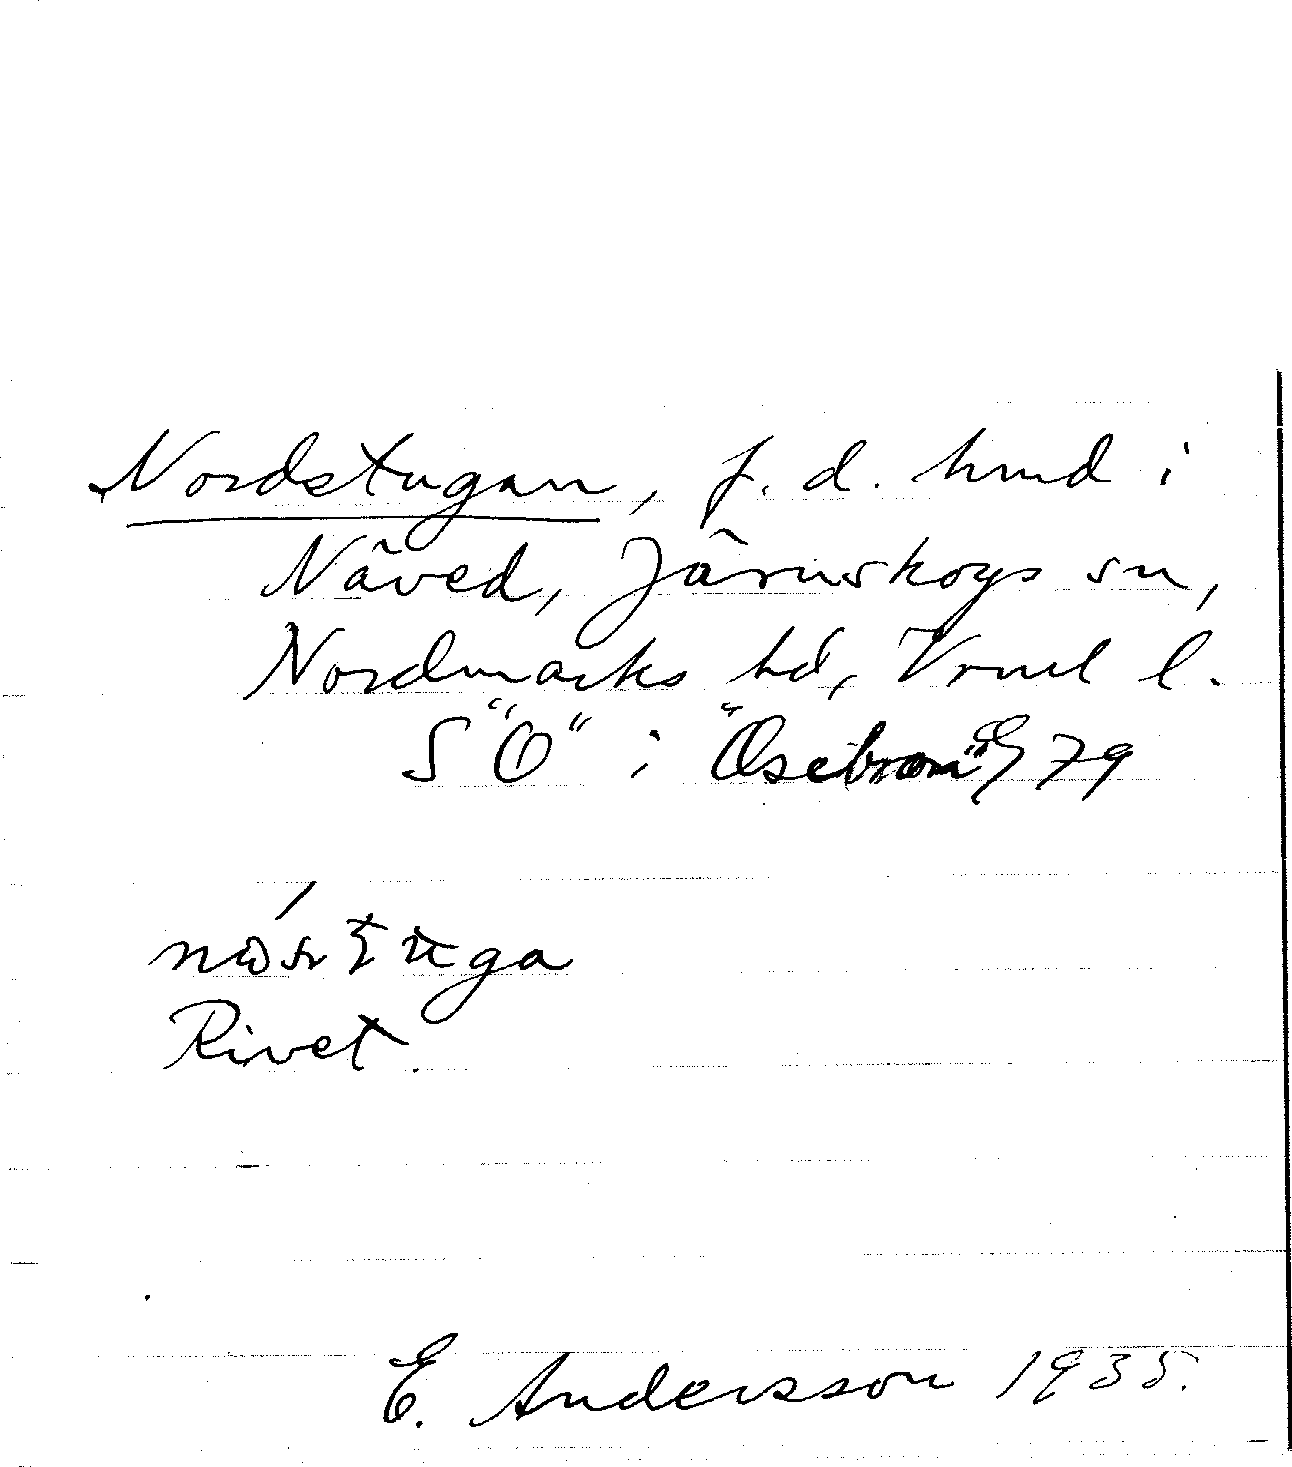 Nordstugan, f. d. hmd i
Näved, Järnskogs sn,
Nordmarks hd, Vrml l.
S "Ö" i "Ösebron" E 79
Rivet.
E. Andersson 1935.